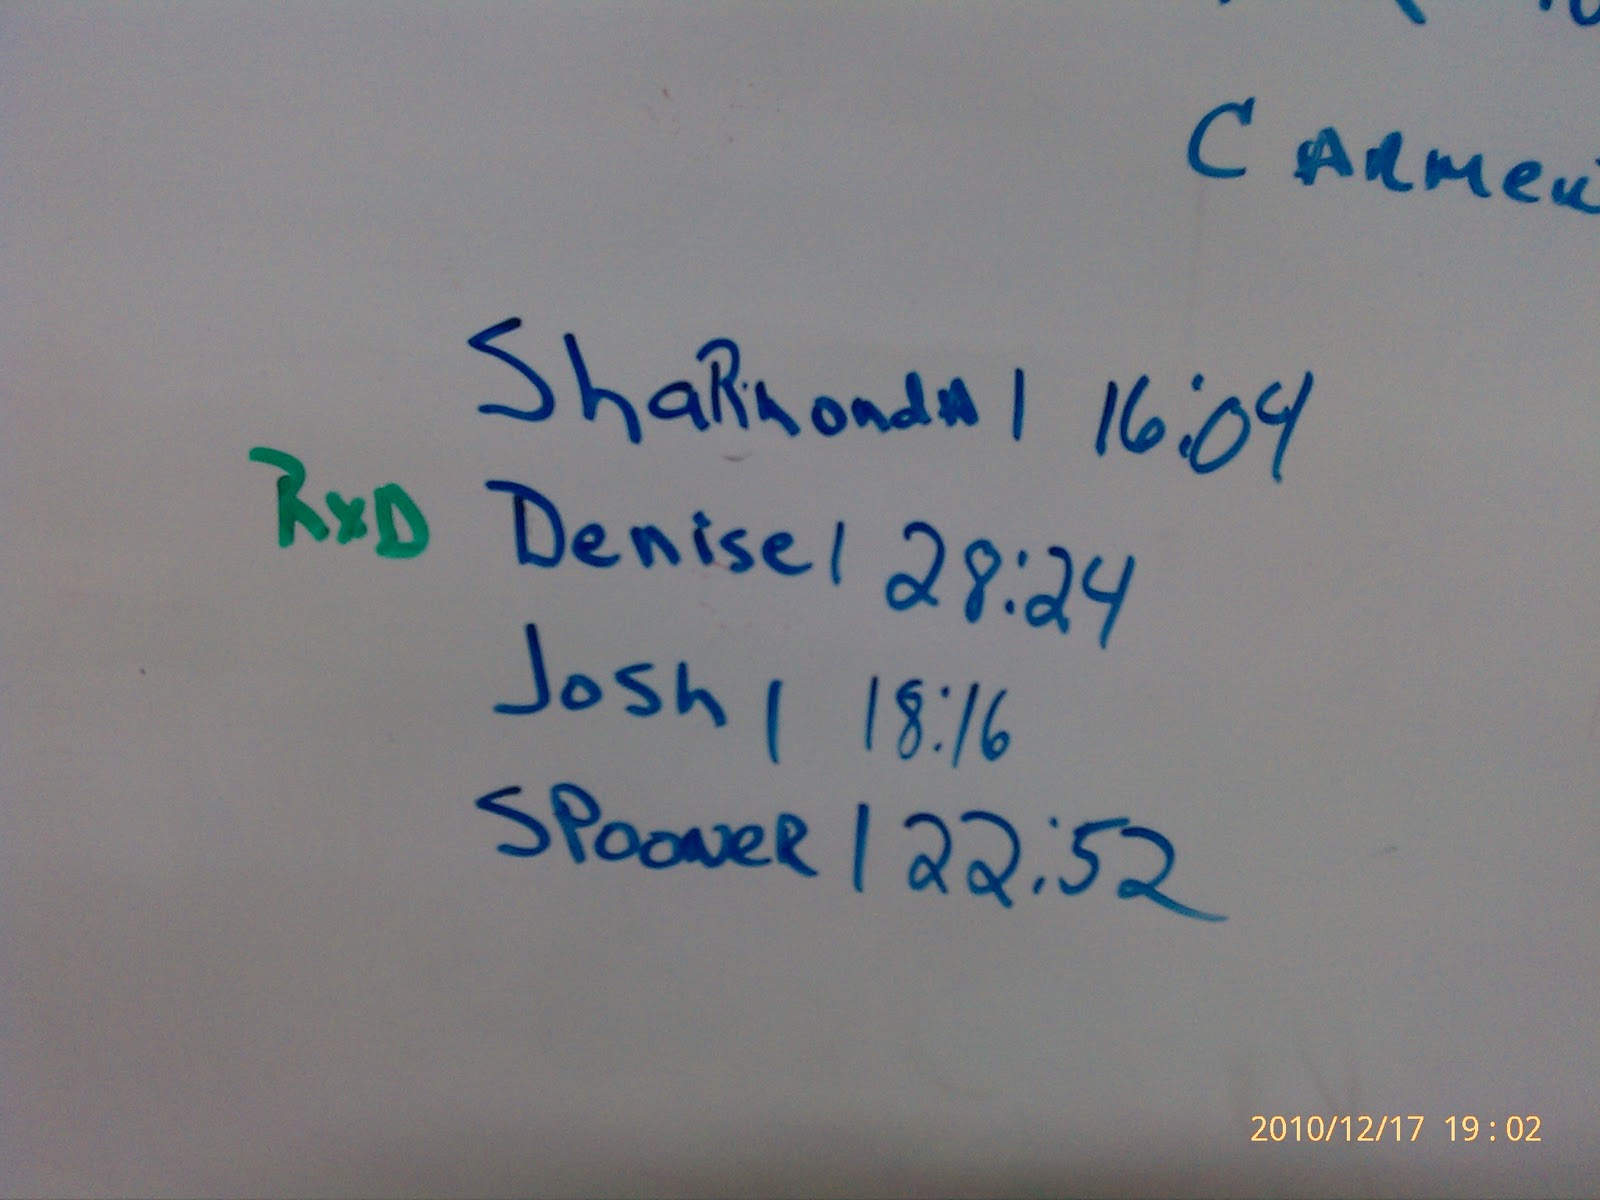 CARMEN
ShaRhonda | 16:04
RxD Denise | 28:24
Josh | 18:16
SPOONER | 22:52
2010/12/17 19:02